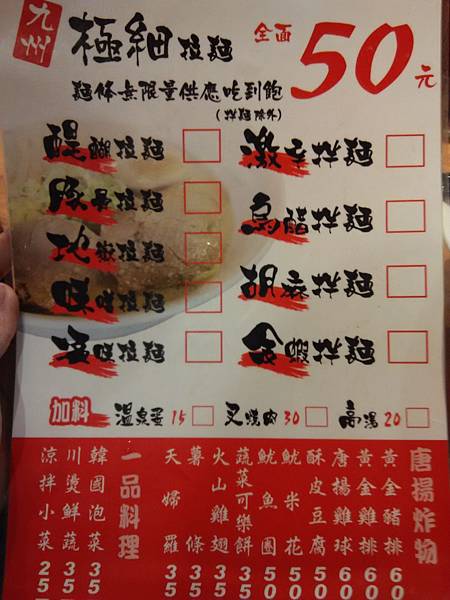 九州
極細拉麵
全面50元
麵体無限量供應吃到飽
(拌麵除外)
醍醐拉麵
豚骨拉麵
地獄拉麵
味噌拉麵
拉麵
激辛拌麵
烏醋拌麵
胡麻拌麵
金蝦拌麵
加料
溫泉蛋 15
叉燒肉 30
高湯 20
唐揚炸物
黃金豬排 60
黃金雞排 60
唐揚雞球 60
酥皮豆腐 50
魷米花 50
魷魚圈 50
蔬菜可樂餅 35
火山雞翅 35
薯條 35
天婦羅 35
一品料理
韓國泡菜 35
川燙鮮蔬 35
涼拌小菜 25